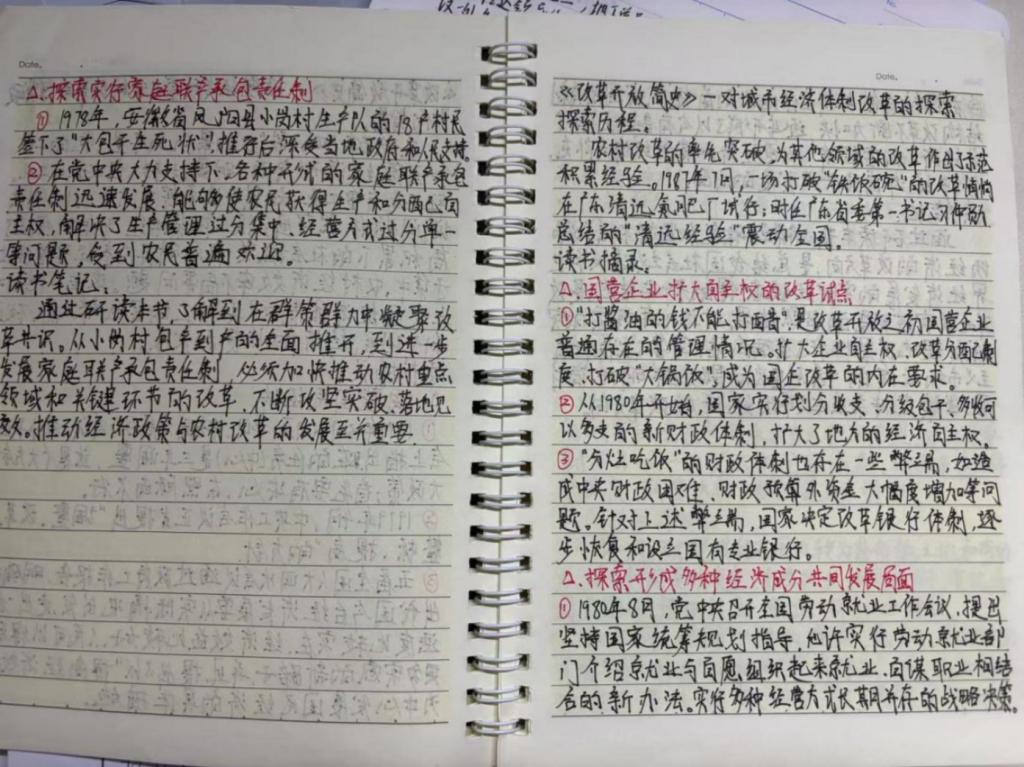 Date.
△.探索实行家庭联产承包责任制
① 1978年,安徽省凤阳县小岗村生产队的18户村民
签下了"大包干生死状".推行后深受当地政府和人民支持.
② 在党中央大力支持下,各种形式的家庭联产承包
责任制迅速发展.能够使农民获得生产和分配已自
主权,解决了生产管理过分集中、经营方式过分单一
等问题,受到农民普遍欢迎。
读书笔记:
通过研读本节,了解到在群策群力中凝聚改
革共识。从小岗村包产到户的全面推开,到进一步
发展家庭联产承包责任制 必须加快推动农村重点
领域和关键环节的改革,不断攻坚突破、落地见
效。推动经济政策与农村改革的发展至关重要
Date.
《改革开放简史》一对城市经济体制改革的探索
探索历程。
农村改革的率先突破,为其他领域的改革作出了示范
积累经验。1987年7月,一场打破"铁饭碗"的改革悄悄
在广东清远氮肥厂试行;时任广东省委第一书记习仲勋
总结的"清远经验"震动全国。
读书摘录:
△.国营企业扩大自主权的改革试点
①"打酱油的钱不能打醋",是改革开放之初国营企业
普遍存在的管理情况。扩大企业自主权、改革分配制
度、打破"大锅饭",成为国企改革的内在要求。
② 从1980年开始,国家实行划分收支、分级包干、多收可
以多支的新财政体制,扩大了地方的经济自主权。
③"分灶吃饭"的财政体制也存在一些弊端,如造
成中央财政困难、财政预算外资金大幅度增加等问
题。针对上述弊端,国家决定改革银行体制,逐
步恢复和设立国有专业银行。
△.探索形成多种经济成分共同发展局面
① 1980年8月,党中央召开全国劳动就业工作会议,提出
坚持国家统筹规划指导,允许实行劳动就业部
门介绍就业与自愿组织起来就业、自谋职业相结
合的新办法.实行多种经营方式长期并存的战略决策。